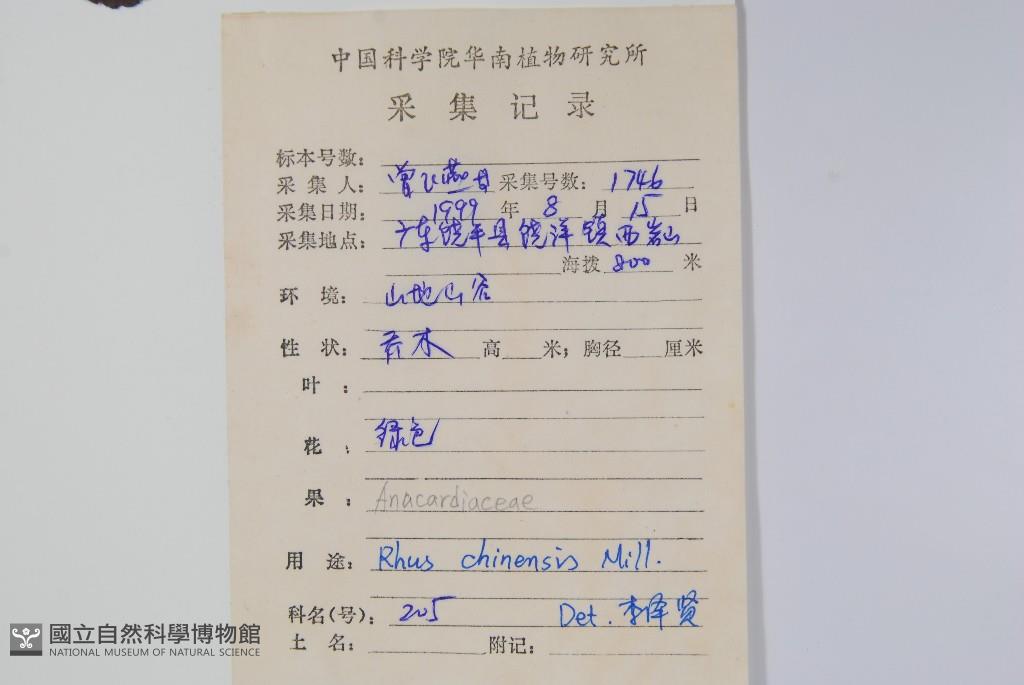 中国科学院华南植物研究所
采集记录
标本号数：
采集人：曾飞燕 采集号数：1746
采集日期：1999年8月15日
采集地点：广东饶平县饶洋镇西岩山
海拨 800 米
环境：山地山谷
性状：乔木 高 米；胸径 厘米
叶：
花：绿色
果：Anacardiaceae
用途：Rhus chinensis Mill.
科名(号)：205 Det. 李泽贤
土名： 附记：
國立自然科學博物館
NATIONAL MUSEUM OF NATURAL SCIENCE